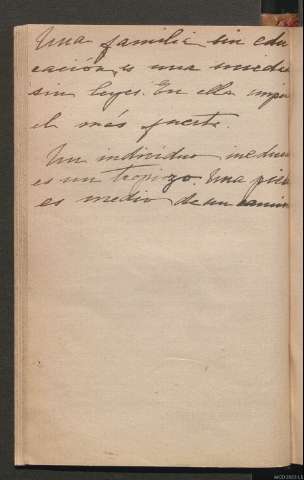 Una familia sin edu
cación, es una
sin leyes. En ella impe
el más fuerte.
Un individuo ineduca
es un tropiezo. Una pied
es medio de un camin